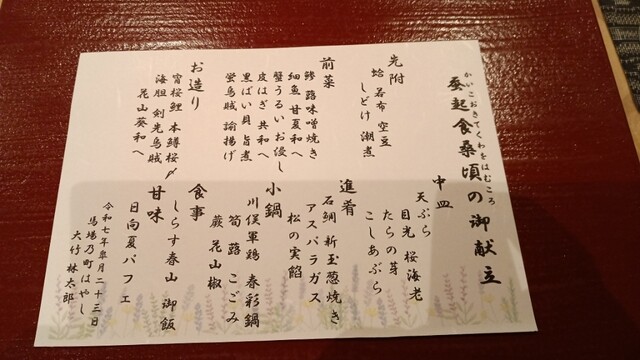 かいこおきてくわをはむころ
蚕起食桑頃の御献立
先附
蛤 若布 空豆
しどけ 潮煮
前菜
鯵 蕗味噌焼き
細魚 甘夏和へ
蟹うるいお浸し
皮はぎ 共和へ
黒ばい貝 旨煮
蛍烏賊 諭揚げ
お造り
宵桜鯉 本鱒桜〆
海胆 剣先烏賊
花山葵和へ
中皿
天ぷら
目光 桜海老
たらの芽
こしあぶら
進肴
石鯛 新玉葱焼き
アスパラガス
松の実餡
小鍋
川俣軍鶏 春彩鍋
筍 蕗 こごみ
蕨 花山椒
食事
しらす春山 御飯
甘味
日向夏パフェ
令和七年皐月二十三日
馬場乃町はやし
大竹 林太郎